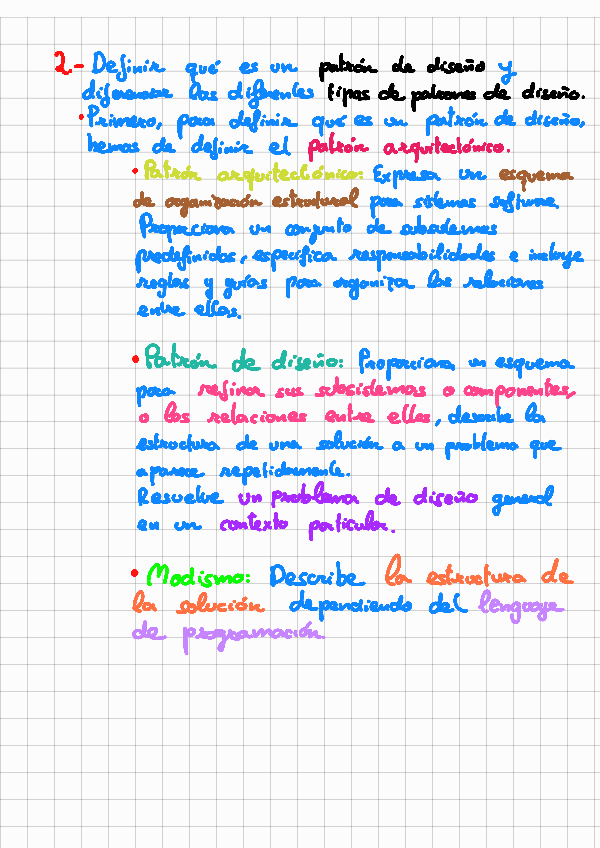 2.- Definir qué es un patrón de diseño y
diferenciar los diferentes tipos de patrones de diseño.
• Primero, para definir qué es un patrón de diseño,
hemos de definir el patrón arquitectónico.
• Patrón arquitectónico: Expresa un esquema
de organización estructural para sistemas software.
Proporciona un conjunto de subsistemas
predefinidos, especifica responsabilidades e incluye
reglas y guías para organizar las relaciones
entre ellos.
• Patrón de diseño: Proporciona un esquema
para refinar sus subsistemas o componentes,
o las relaciones entre ellos, describe la
estructura de una solución a un problema que
aparece repetidamente.
Resuelve un problema de diseño general
en un contexto particular.
• Modismo: Describe la estructura de
la solución dependiendo del lenguaje
de programación